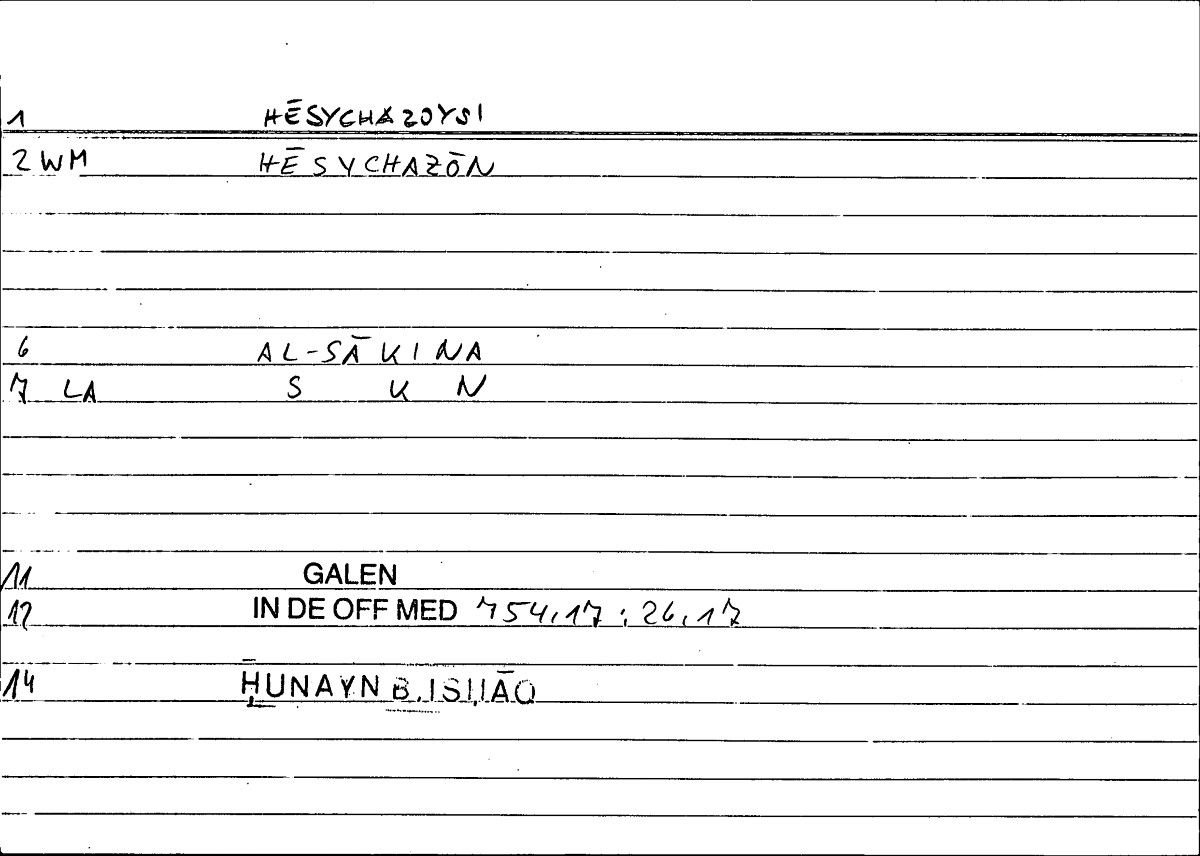 1 HĒSYCHAZOYSI
2 WM HĒSYCHAZŌN
6 AL-SĀKINA
7 LA S K N
11 GALEN
12 IN DE OFF MED 754,17 : 26,17
14 ḤUNAYN B. ISḤĀQ